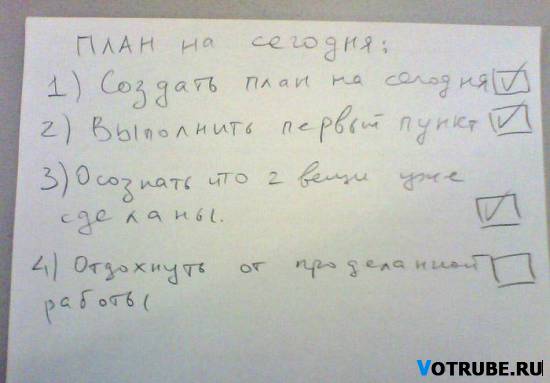 ПЛАН на сегодня:
1) Создать план на сегодня
2) Выполнить первый пункт
3) Осознать что 2 вещи уже
сделаны.
4) Отдохнуть от проделанной
работы
VOTRUBE.RU